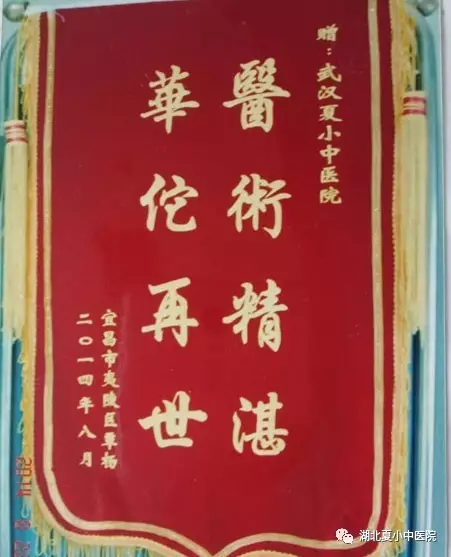 赠：武汉夏小中医院
醫術精湛
華佗再世
宜昌市夷陵区覃杨
二〇一四年八月
湖北夏小中医院